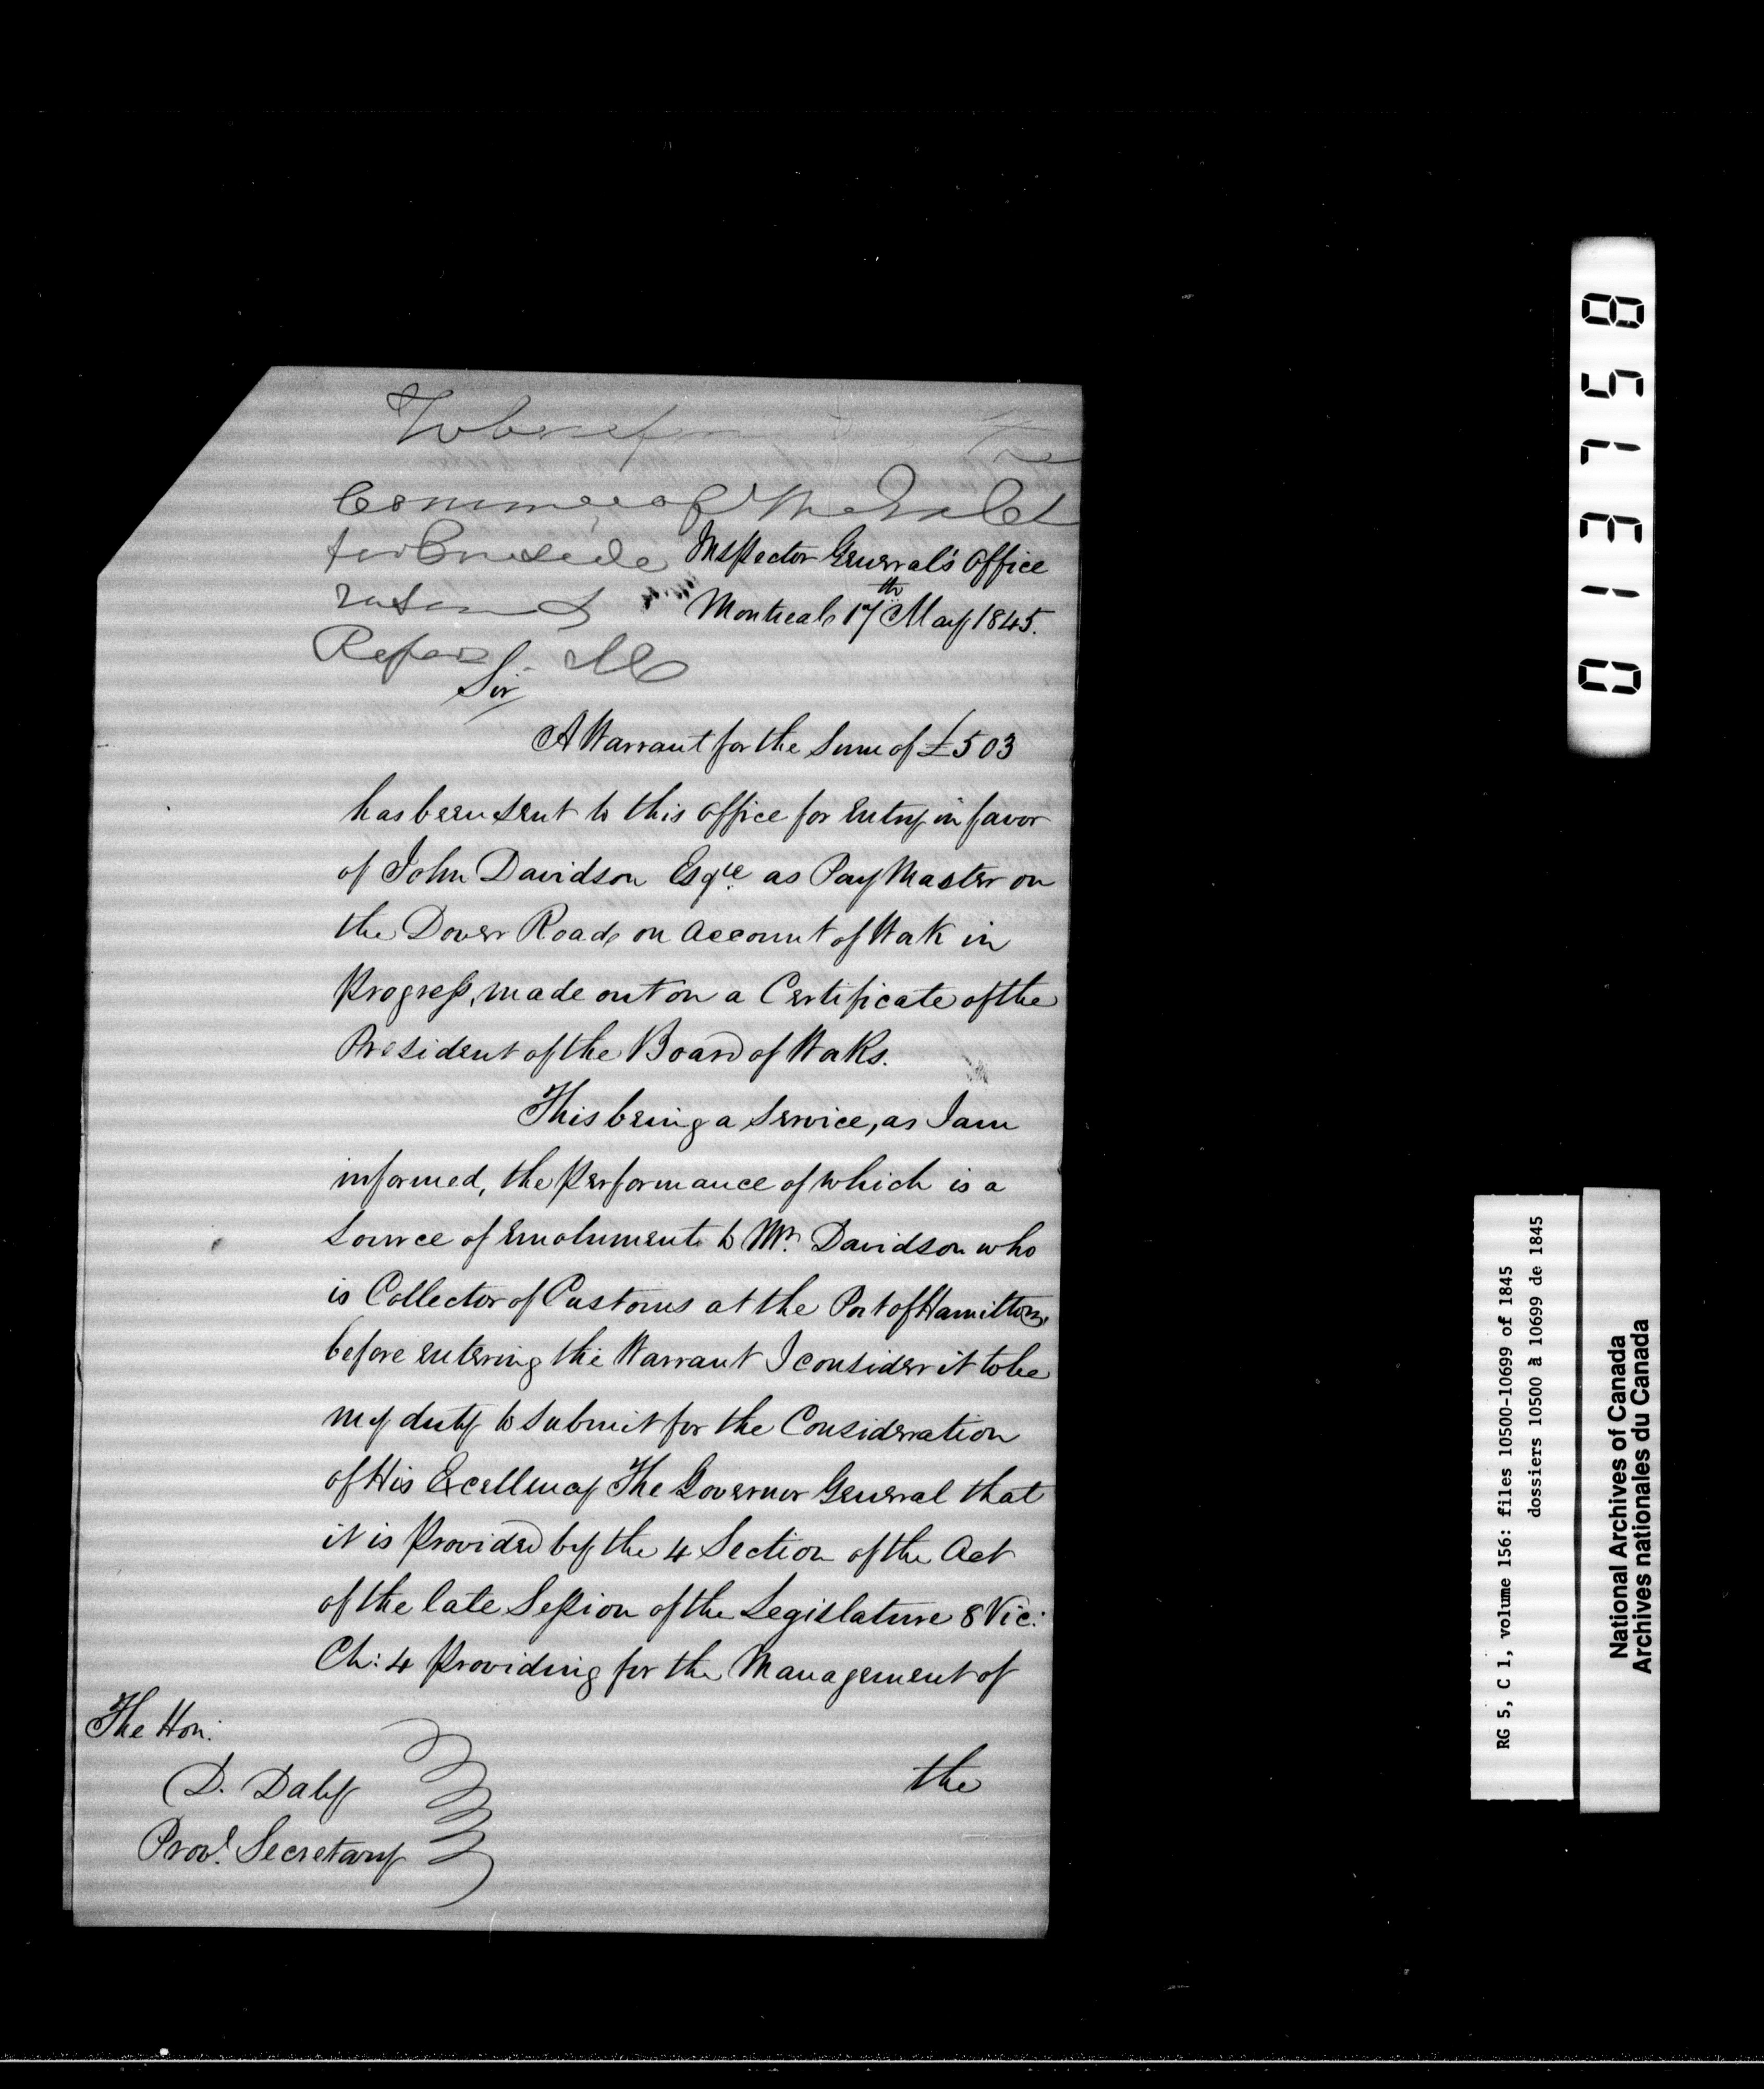 To be referred the
Committee of the Exve Cl
for Conside
ration &
Report M
Inspector General's Office
Montreal 17th May 1845.
Sir
A Warrant for the Sum of £503
has been sent to this Office for Entry in favor
of John Davidson Esqre as Pay Master on
the Dover Road on Account of Work in
Progress, made out on a Certificate of the
President of the Board of Works.
This being a Service, as I am
informed, the Performance of which is a
Source of Emolument to Mr. Davidson who
is Collector of Customs at the Port of Hamilton,
before entering the Warrant I consider it to be
my duty to submit for the Consideration
of His Excellency The Governor General that
it is Provided by the 4 Section of the Act
of the late Session of the Legislature 8 Vic:
Ch: 4 Providing for the Management of
the
The Hon:
D. Daly
Provl. Secretary
013758
RG 5, C 1, volume 156: files 10500-10699 of 1845
dossiers 10500 à 10699 de 1845
National Archives of Canada
Archives nationales du Canada